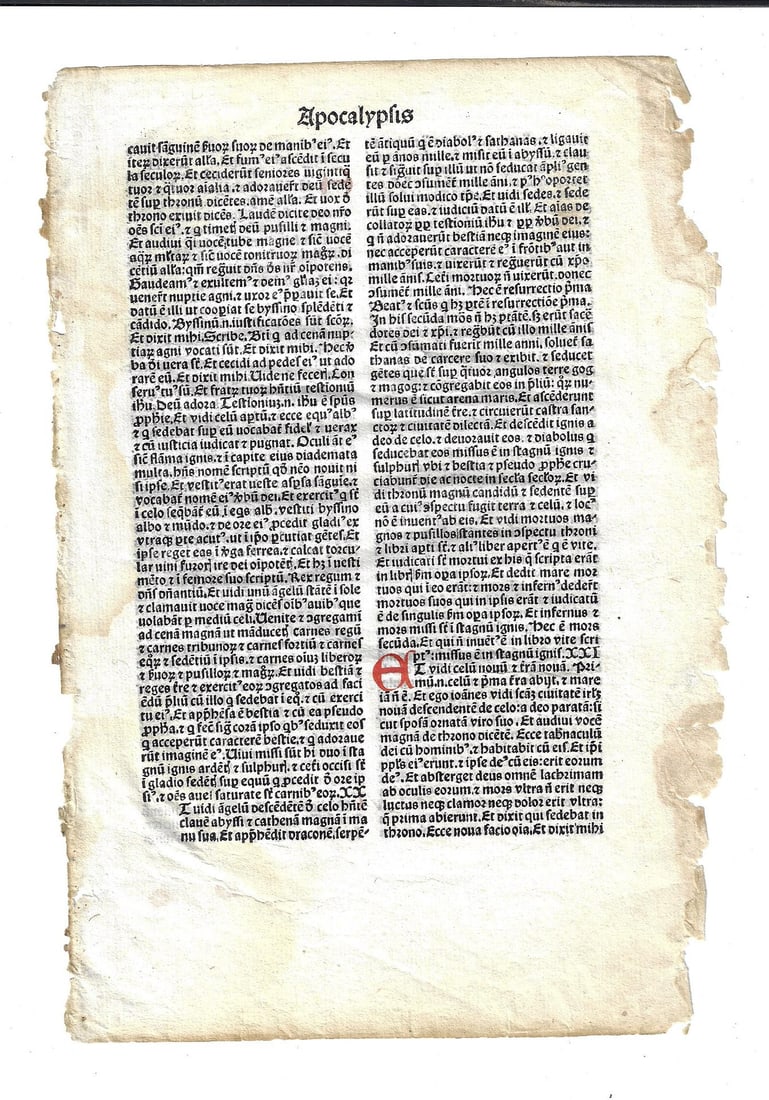 Apocalypsis
cauit sãguinẽ ẜuoꝝ suoꝝ de manibꝰ eiꝰ. Et
iteꝝ dixerũt alťa. Et fumꝰ eiꝰ ascẽdit ĩ secu
la seculoꝝ. Et ceciderũt seniores uigintiq
tuor ⁊ q̃tuor aĩalia. ⁊ adorauerũt deũ sedẽ
tẽ sup thronũ dicẽtes. amẽ alťa. Et uox ď
throno exiuit dicẽs. Laudẽ dicite deo nr̃o
oẽs sc̃i eiꝰ. ⁊ q timetꝭ deũ pusilli ⁊ magni.
Et audiui q̃i uocẽ tube magne ⁊ sic̃ uocẽ
aqꝝ ml̃taꝝ ⁊ sic̃ uocẽ tonitruoꝝ magꝝ. di
cẽtiũ alťa: qm̃ reg̃uit dñs ďs nr̃ oĩpotens.
Gaudeamꝰ ⁊ exultemꝰ ⁊ demꝰ gl̃iaz ei: qꝛ
venerũt nuptie agni. ⁊ uxor eꝰ p̃ꝑauit se. Et
datũ ẽ illi ut coopĩat se byssino splẽdẽti ⁊
cãdido. Byssinũ.n. iustificatões sũt sc̃oꝝ.
Et dixit mihi. Scribe. Bti q ad cenã nup-
tiaꝝ agni vocati sũt. Et dixit mihi. Hec ỽ
ba ďi uera sť. Et cecidi ad pedes eiꝰ ut ado
rarẽ eũ. Et dixit mihi. Uide ne fecerꝭ. Con
seruꝰ tuꝰ sũ. Et fratꝝ tuoꝝ hñtiũ testioniũ
ih̃u. Deũ adora. Testioniũ.n. ih̃u ẽ sp̃us
ꝓphie. Et vidi celũ aꝑtũ. ⁊ ecce equꝰ albꝰ
⁊ q sedebat sup eũ uocabat̃ fidelꝭ ⁊ uerax
⁊ cũ iusticia iudicat ⁊ pugnat. Oculi ãt eꝰ
sic̃ flãma ignis. ⁊ ĩ capite eius diademata
multa. hñs nomẽ scriptũ qď nẽo nouit ni
si ipse. Et vestitꝰ erat ueste asꝑsa sãguĩe. ⁊
vocabat̃ nomẽ eiꝰ ỽbũ dei. Et exercitꝰ q sť
ĩ celo seq̃bãt̃ eũ ĩ eqs albꝭ. vestiti byssino
albo ⁊ mũdo. ⁊ de ore eiꝰ ꝓcedit gladiꝰ ex
vtraqꝫ ꝑte acutꝰ. ut ĩ ip̃o ꝑcutiat gẽtes. Et
ip̃e reget eas ĩ ỽga ferrea. ⁊ calcat torcu-
lar uini furorꝭ ire dei oĩpotẽtꝭ. Et hꝫ ĩ uesti
mẽto ⁊ ĩ femore suo scriptũ. Rex regum ⁊
dñs dñantiũ. Et uidi unũ ãgelũ stãtẽ ĩ sole
⁊ clamauit uoce mag̃ dicẽs oĩbꝰ auibꝰ que
uolabãt ꝑ mediũ celi. Uenite ⁊ ɔgregami
ad cenã magnã ut mãducetꝭ carnes regũ
⁊ carnes tribunoꝝ ⁊ carnes fortiũ ⁊ carnes
eqꝝ ⁊ sedẽtiũ ĩ ipsis. ⁊ carnes oĩuz liberoꝝ
⁊ ẜuoꝝ ⁊ pusilloꝝ ⁊ mag̃ꝝ. Et uidi bestiã ⁊
reges ťre ⁊ exercitꝰ eoꝝ ɔgregatos ad faci
ẽdũ p̃liũ cũ illo q sedebat ĩ eq̃. ⁊ cũ exerci
tu eiꝰ. Et app̃hẽsa ẽ bestia ⁊ cũ ea pseudo
ꝓpħa. ⁊ q fec̃ sig̃ corã ipso qbꝰ seduxit eos
q acceperũt caracterẽ bestie. ⁊ q adoraue
rũt imaginẽ eꝰ. Uiui missi sũt hi duo ĩ sta
gnũ ignis ardẽtꝭ ⁊ sulphurꝭ. ⁊ cet̃i occisi sť
ĩ gladio sedẽtꝭ sup equũ q ꝓcedit ď ore ip
siꝰ. ⁊ oẽs aues saturate sť carnibꝰ eoꝝ. XX
T uidi ãgelũ descẽdẽtẽ ď celo hñtẽ
clauẽ abyssi ⁊ cathenã magnã ĩ ma
nu sua. Et app̃hẽdit draconẽ. serpẽ-
tẽ ãtiquũ q ẽ diabolꝰ ⁊ sathanas. ⁊ ligauit
eũ ꝑ ãnos mille. ⁊ misit eũ ĩ abyssũ. ⁊ clau
sit ⁊ sig̃uit sup illũ ut nõ seducat ãpliꝰ gen
tes donec ɔsumẽt̃ mille ãni. ⁊ pꝰ hꝰ oportet
illũ solui modico tp̃e. Et uidi sedes. ⁊ sede
rũt sup eas. ⁊ iudiciũ datũ ẽ illꝭ. Et aĩas de
collatoꝝ ꝓꝑ testioniũ ih̃u ⁊ ꝓꝑ ỽbũ dei. ⁊
q ñ adorauerũt bestiã neqꝫ imaginẽ eius:
nec acceperũt caracterẽ eꝰ ĩ frõtibꝰ aut in
manibꝰ suis. ⁊ uixerũt ⁊ reg̃uerũt cũ xp̃o
mille ãnis. Cet̃i mortuoꝝ ñ uixerũt. donec
ɔsumẽt̃ mille ãni. Hec ẽ resurrectio p̃ma
Beatꝰ ⁊ sc̃us q hꝫ ꝑtẽ ĩ resurrectiõe p̃ma.
In his secũda mõs ñ hꝫ ptãtẽ. sꝫ erũt sacẽ
dotes dei ⁊ xp̃i. ⁊ reg̃bũt cũ illo mille ãnis
Et cũ ɔsũmati fuerit mille anni. soluet̃ sa
thanas de carcere suo ⁊ exibit. ⁊ seducet
gẽtes que sť sup q̃tuor angulos terre gog
⁊ magog: ⁊ cõgregabit eos in p̃liũ: qꝝ nu-
merus ẽ sicut arena maris. Et ascẽderunt
sup latitudinẽ ťre. ⁊ circuierũt castra san-
ctoꝝ ⁊ ciuitatẽ dilectã. Et descẽdit ignis a
deo de celo. ⁊ deuorauit eos. ⁊ diabolus q
seducebat eos missus ẽ in stagnũ ignis ⁊
sulphurꝭ vbi ⁊ bestia ⁊ pseudo ꝓpħe cru-
ciabunt̃ die ac nocte in secľa secľoꝝ. Et vi
di thronũ magnũ candidũ ⁊ sedentẽ sup
eũ a cuiꝰ ɔspectu fugit terra ⁊ celũ. ⁊ locꝰ
nõ ẽ inuentꝰ ab eis. Et vidi mortuos ma-
gnos ⁊ pusillos stantes in ɔspectu throni
⁊ libri aꝑti sť. ⁊ aliꝰ liber apertꝰ ẽ q ẽ vite.
Et iudicati sť mortui ex his q̃ scripta erãt
in librꝭ ẜm oꝑa ipsoꝝ. Et dedit mare mor
tuos qui ĩ eo erãt: ⁊ mors ⁊ infernꝰ dederũt
mortuos suos qui in ipsis erãt ⁊ iudicatũ
ẽ de singulis ẜm oꝑa ipsoꝝ. Et infernus ⁊
mors missi sť ĩ stagnũ ignis. Hec ẽ mors
secũda. Et qui ñ inuẽtꝰ ẽ in libro vite scri
ptꝰ: missus ẽ in stagnũ ignis. XXI
ET vidi celũ nouũ ⁊ ťrã nouã. Pri-
mũ.n. celũ ⁊ p̃ma ťra abijt. ⁊ mare
iã ñ ẽ. Et ego ioãnes vidi scãꝫ ciuitatẽ irľꝫ
nouã descendentẽ de celo: a deo paratã: si
cut sposã ornatã viro suo. Et audiui vocẽ
magnã de throno dicẽtẽ. Ecce tabnaculũ
dei cũ hominibꝰ. ⁊ habitabit cũ eis. Et ip̃i
ppľs eiꝰ erunt. ⁊ ipse deꝰ cũ eis: erit eorum
deꝰ. Et absterget deus omnẽ lachrimam
ab oculis eorum. ⁊ mors vltra ñ erit neqꝫ
luctus neqꝫ clamor neqꝫ dolor erit vltra:
q̃ prima abierunt. Et dixit qui sedebat in
throno. Ecce noua facio oĩa. Et dixit mihi